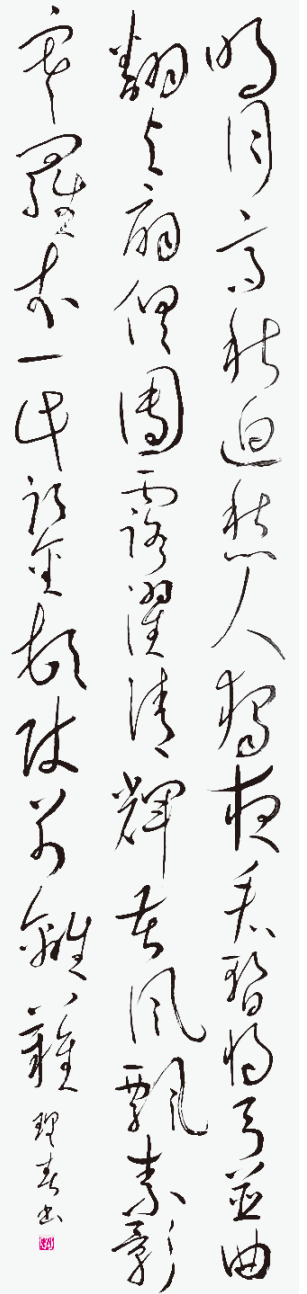 明月高秋迥愁人獨夜看暫將弓並曲
翻與扇俱團露濯清輝苦風飄素影
寒羅衣一此鑒頓使別離難
理春書